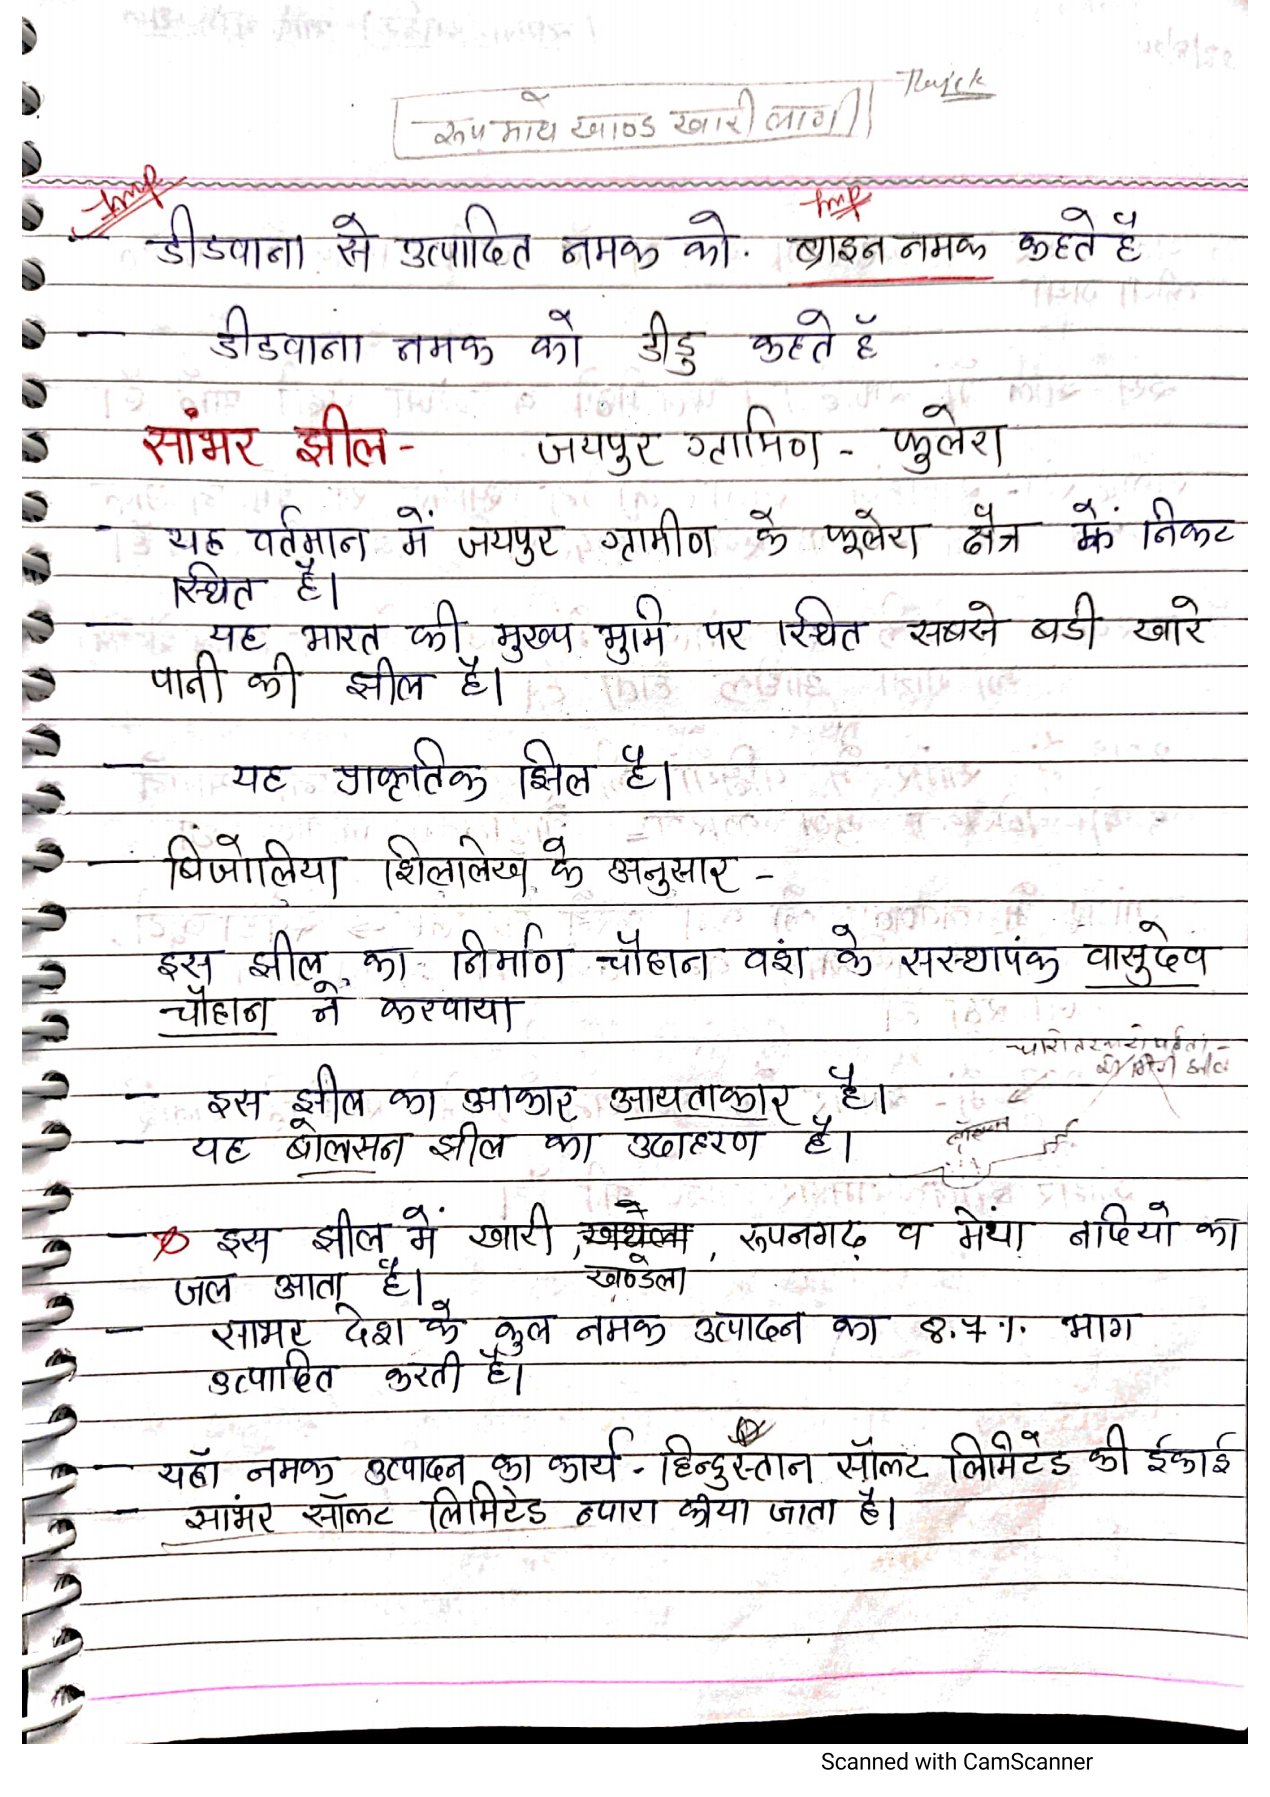 Trick
रूप माथे खाण्ड खारी लागी
Imp
Imp
- डीडवाना से उत्पादित नमक को. ब्राइन नमक कहते है
- डीडवाना नमक को डीडु कहते हॅ
सांभर झील - जयपुर ग्रामिण - फुलेरा
- यह वर्तमान में जयपुर ग्रामीण के फूलेरा क्षैत्र कें निकट
स्थित है।
- यह भारत की मुख्य भुमि पर स्थित सबसे बडी खारे
पानी की झील है।
- यह प्राकृतिक झिल है।
- बिंजोलिया शिलालेख के अनुसार -
इस झील का निर्माण चौहान वंश के सस्थापंक वासुदेव
चौहान ने करवाया
- इस झील का आकार आयताकार है।
- यह बोलसन झील का उदाहरण है।
- इस झील में खारी, , रूपनगढ़ व मेंथा नदियो का
खण्डेला
जल आता है।
- साभर देश के कुल नमक उत्पादन का 8.7%. भाग
उत्पादित करती है।
- यहॉ नमक उत्पादन का कार्य - हिन्दुस्तान सॉलट लिमिटेड की ईकाई
- सांभर सॉलट लिमिटेड व्दारा कीया जाता है।
Scanned with CamScanner